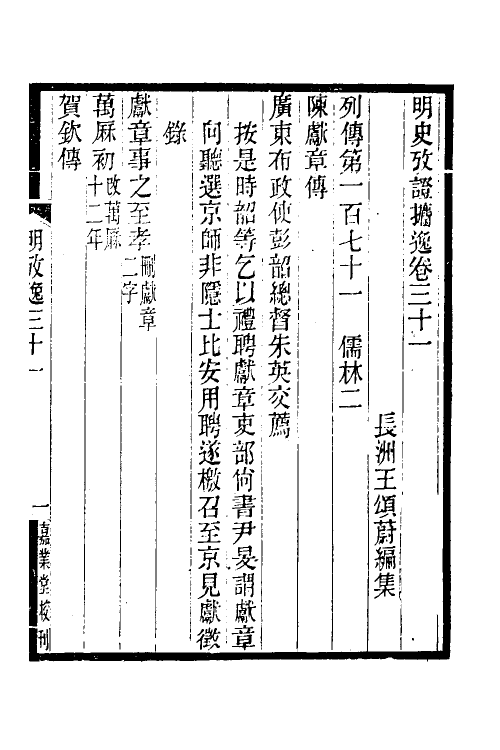 明史攷證攟逸卷三十一
長洲王頌蔚編集
列傳第一百七十一　儒林二
陳獻章傳
廣東布政使彭韶總督朱英交薦
按是時韶等乞以禮聘獻章吏部尙書尹旻謂獻章
向聽選京師非隱士比安用聘遂檄召至京見獻徵
錄
獻章事之至孝刪獻章
二字
萬厤初改萬厤
十二年
賀欽傳
明攷逸三十一
一
嘉業堂校刊